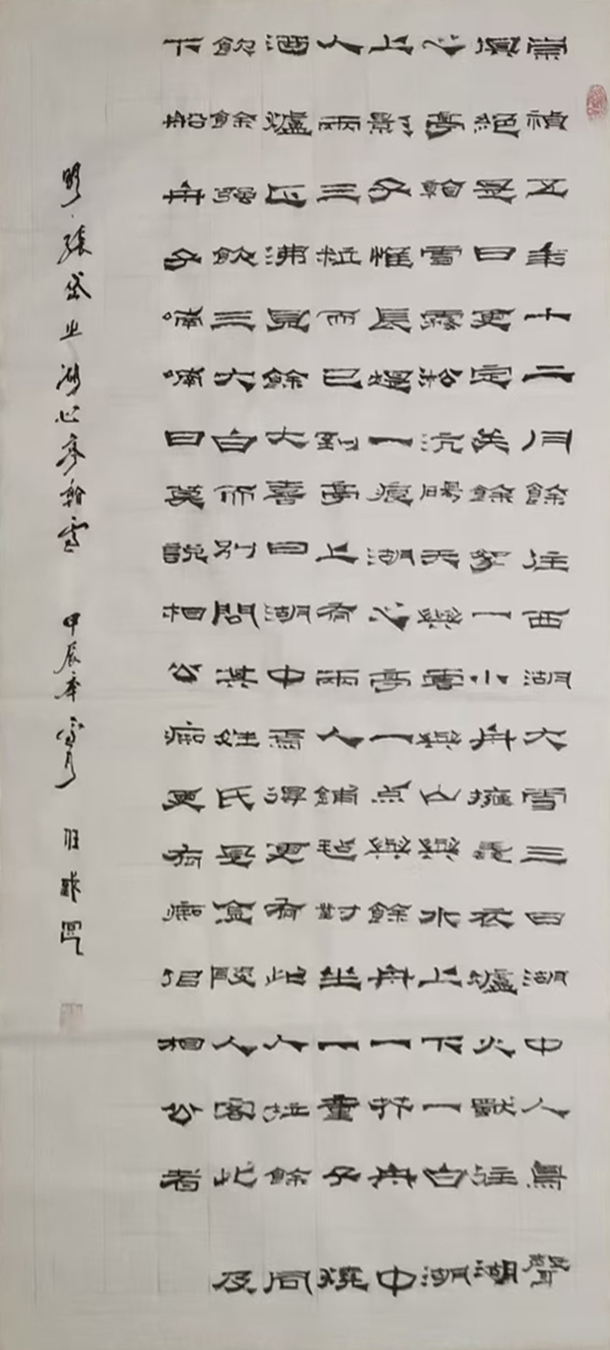 崇禎五年十二月餘住西湖大雪三日湖中人鳥聲
俱絕是日更定矣餘拏一小舟擁毳衣爐火獨往湖
心亭看雪霧凇沆碭天與雲與山與水上下一白湖
上影子惟長堤一痕湖心亭一点與餘舟一芥舟中
人兩三粒而已到亭上有兩人鋪氈對坐一童子燒
酒爐正沸見餘大喜曰湖中焉得更有此人拉餘同
飲餘強飲三大白而別問其姓氏是金陵人客此及
下船舟子喃喃曰莫說相公痴更有痴似相公者
明·張岱之湖心亭看雪 甲辰年